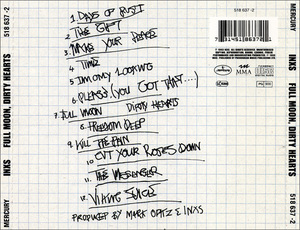 518 637-2
1. DAYS OF RUST
2. THE GIFT
3. MAKE YOUR PEACE
4. TIME
5. I'M ONLY LOOKING
6. PLEASE (YOU GOT THAT...)
7. FULL MOON DIRTY HEARTS
8. FREEDOM DEEP
9. KILL THE PAIN
10. CUT YOUR ROSES DOWN
11. THE MESSENGER
12. VIKING JUICE
PRODUCED BY MARK OPITZ & INXS
7 31451 86372
MMA
MERCURY INXS FULL MOON, DIRTY HEARTS 518 637-2
MERCURY INXS FULL MOON, DIRTY HEARTS 518 637-2